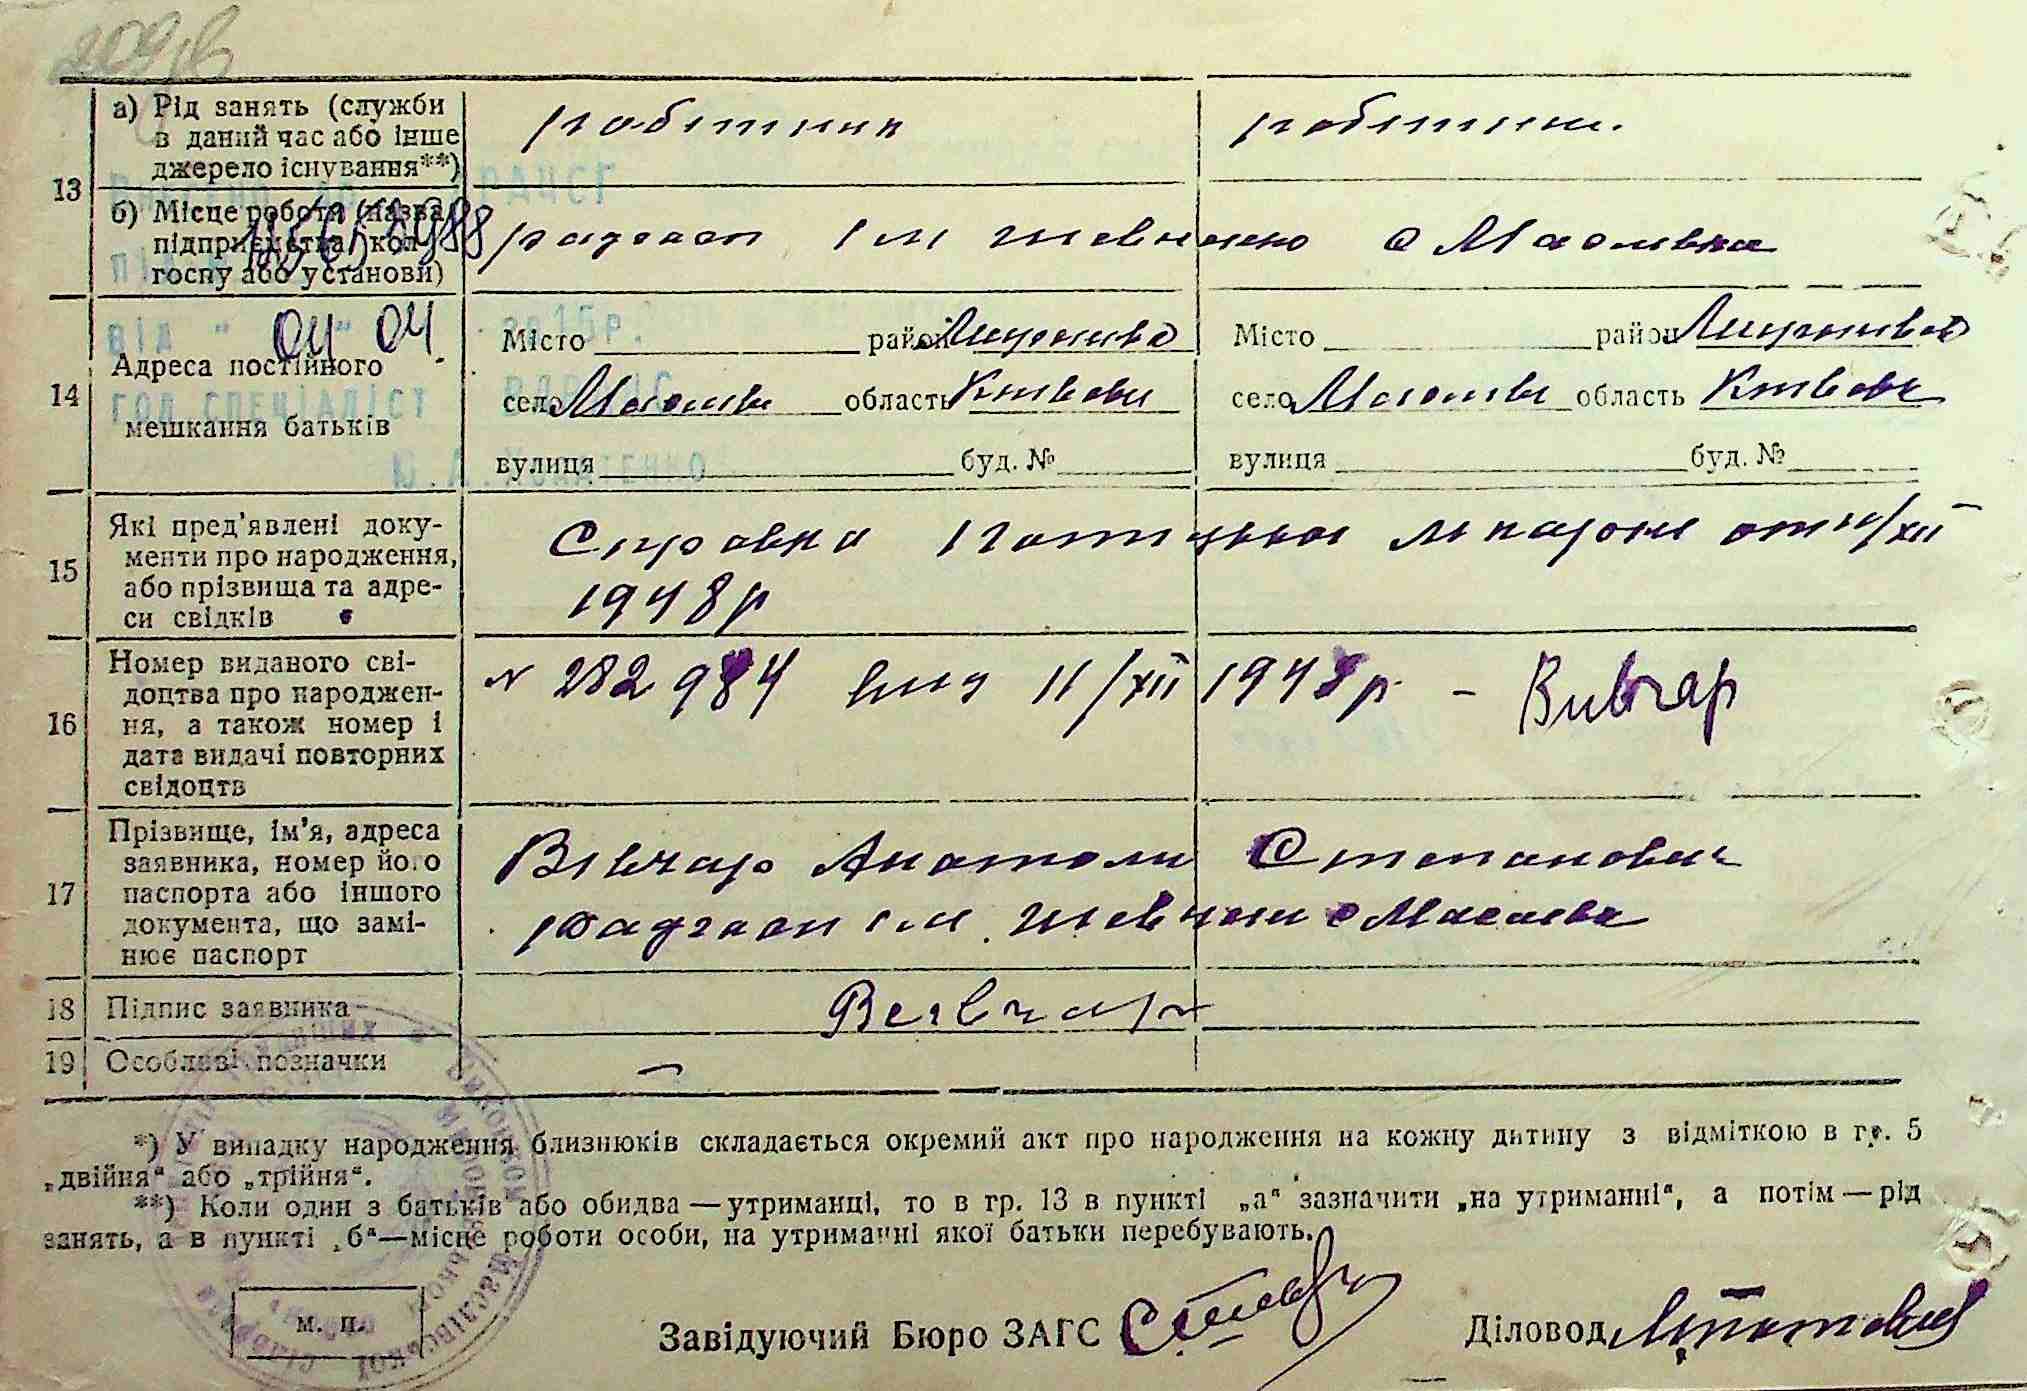 13
а) Рід занять (служби
в даний час або інше
джерело існування**)
робітник
робітниц.
б) Місце роботи (назва
підприємства, кол-
госпу або установи)
радгосп ім Шевченко с Маслівка
14
Адреса постійного
мешкання батьків
від " 04 " 04. 2015р.
гол.спеціаліст
Місто район Миронівсь
село Маслівк область Київськ
вулиця буд. №
Місто район Миронівськ
село Маслівк область Київськ
вулиця буд. №
15
Які пред'явлені доку-
менти про народження,
або прізвища та адре-
си свідків
Справка лікарні от
1948р
16
Номер виданого сві-
доцтва про народжен-
ня, а також номер і
дата видачі повторних
свідоцтв
№ 282984 вид 11/XII 1948р. - Вивчар
17
Прізвище, ім'я, адреса
заявника, номер його
паспорта або іншого
документа, що замі-
нює паспорт
Вівчар Анатоли Степанович
радгосп ім. Шевченк с Маслівк
18
Підпис заявника
Вивчар
19
Особливі позначки
—
*) У випадку народження близнюків складається окремий акт про народження на кожну дитину з відміткою в гр. 5
„двійня“ або „трійня“.
**) Коли один з батьків або обидва — утриманці, то в гр. 13 в пункті „а“ зазначити „на утриманні“, а потім — рід
занять, а в пункті „б“—місце роботи особи, на утриманні якої батьки перебувають.
м. п.
Завідуючий Бюро ЗАГС
Діловод